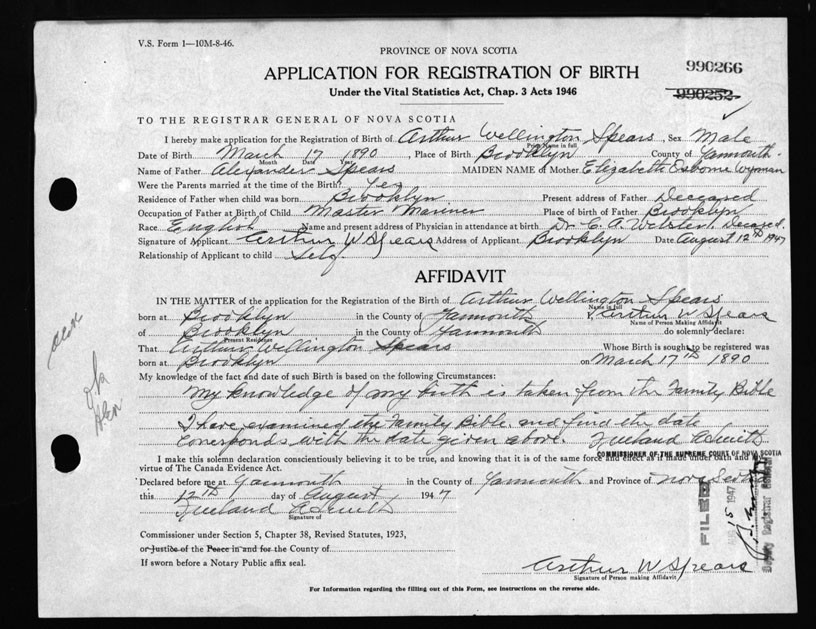 V.S. Form 1—10M-8-46.
PROVINCE OF NOVA SCOTIA
990266
APPLICATION FOR REGISTRATION OF BIRTH
Under the Vital Statistics Act, Chap. 3 Acts 1946
990252
TO THE REGISTRAR GENERAL OF NOVA SCOTIA
I hereby make application for the Registration of Birth of Arthur Wellington Spears, Sex Male
Print Name in full
Date of Birth March 17 1890, Place of Birth Brooklyn County of Yarmouth
Month Date Year
Name of Father Alexander Spears MAIDEN NAME of Mother Elizabeth Osborne Wyman
Were the Parents married at the time of the Birth? Yes
Residence of Father when child was born Brooklyn Present address of Father Deceased
Occupation of Father at Birth of Child Master Mariner Place of birth of Father Brooklyn
Race English Name and present address of Physician in attendance at birth Dr. C. A. Webster. Deceased.
Signature of Applicant Arthur W Spears Address of Applicant Brooklyn Date August 12th 1947
Relationship of Applicant to child Self.
AFFIDAVIT
IN THE MATTER of the application for the Registration of the Birth of Arthur Wellington Spears
Name in full
born at Brooklyn in the County of Yarmouth I, Arthur W Spears
Name of Person Making Affidavit
of Brooklyn in the County of Yarmouth do solemnly declare:
Present Residence
That Arthur Wellington Spears Whose Birth is sought to be registered was
born at Brooklyn on March 17th 1890
My knowledge of the fact and date of such Birth is based on the following Circumstances:
My knowledge of my birth is taken from the Family Bible
I have examined the Family Bible and find the date
corresponds with the date given above. Freeland A Smith
COMMISSIONER OF THE SUPREME COURT OF NOVA SCOTIA
I make this solemn declaration conscientiously believing it to be true, and knowing that it is of the same force and effect as if made under oath and by
virtue of The Canada Evidence Act.
Declared before me at Yarmouth in the County of Yarmouth and Province of Nova Scotia
this 12th day of August 1947
Freeland A Smith
Signature of
FILED
15 1947
Deputy Registrar General
Commissioner under Section 5, Chapter 38, Revised Statutes, 1923,
or Justice of the Peace in and for the County of
If sworn before a Notary Public affix seal.
Arthur W Spears
Signature of Person making Affidavit
For Information regarding the filling out of this Form, see instructions on the reverse side.